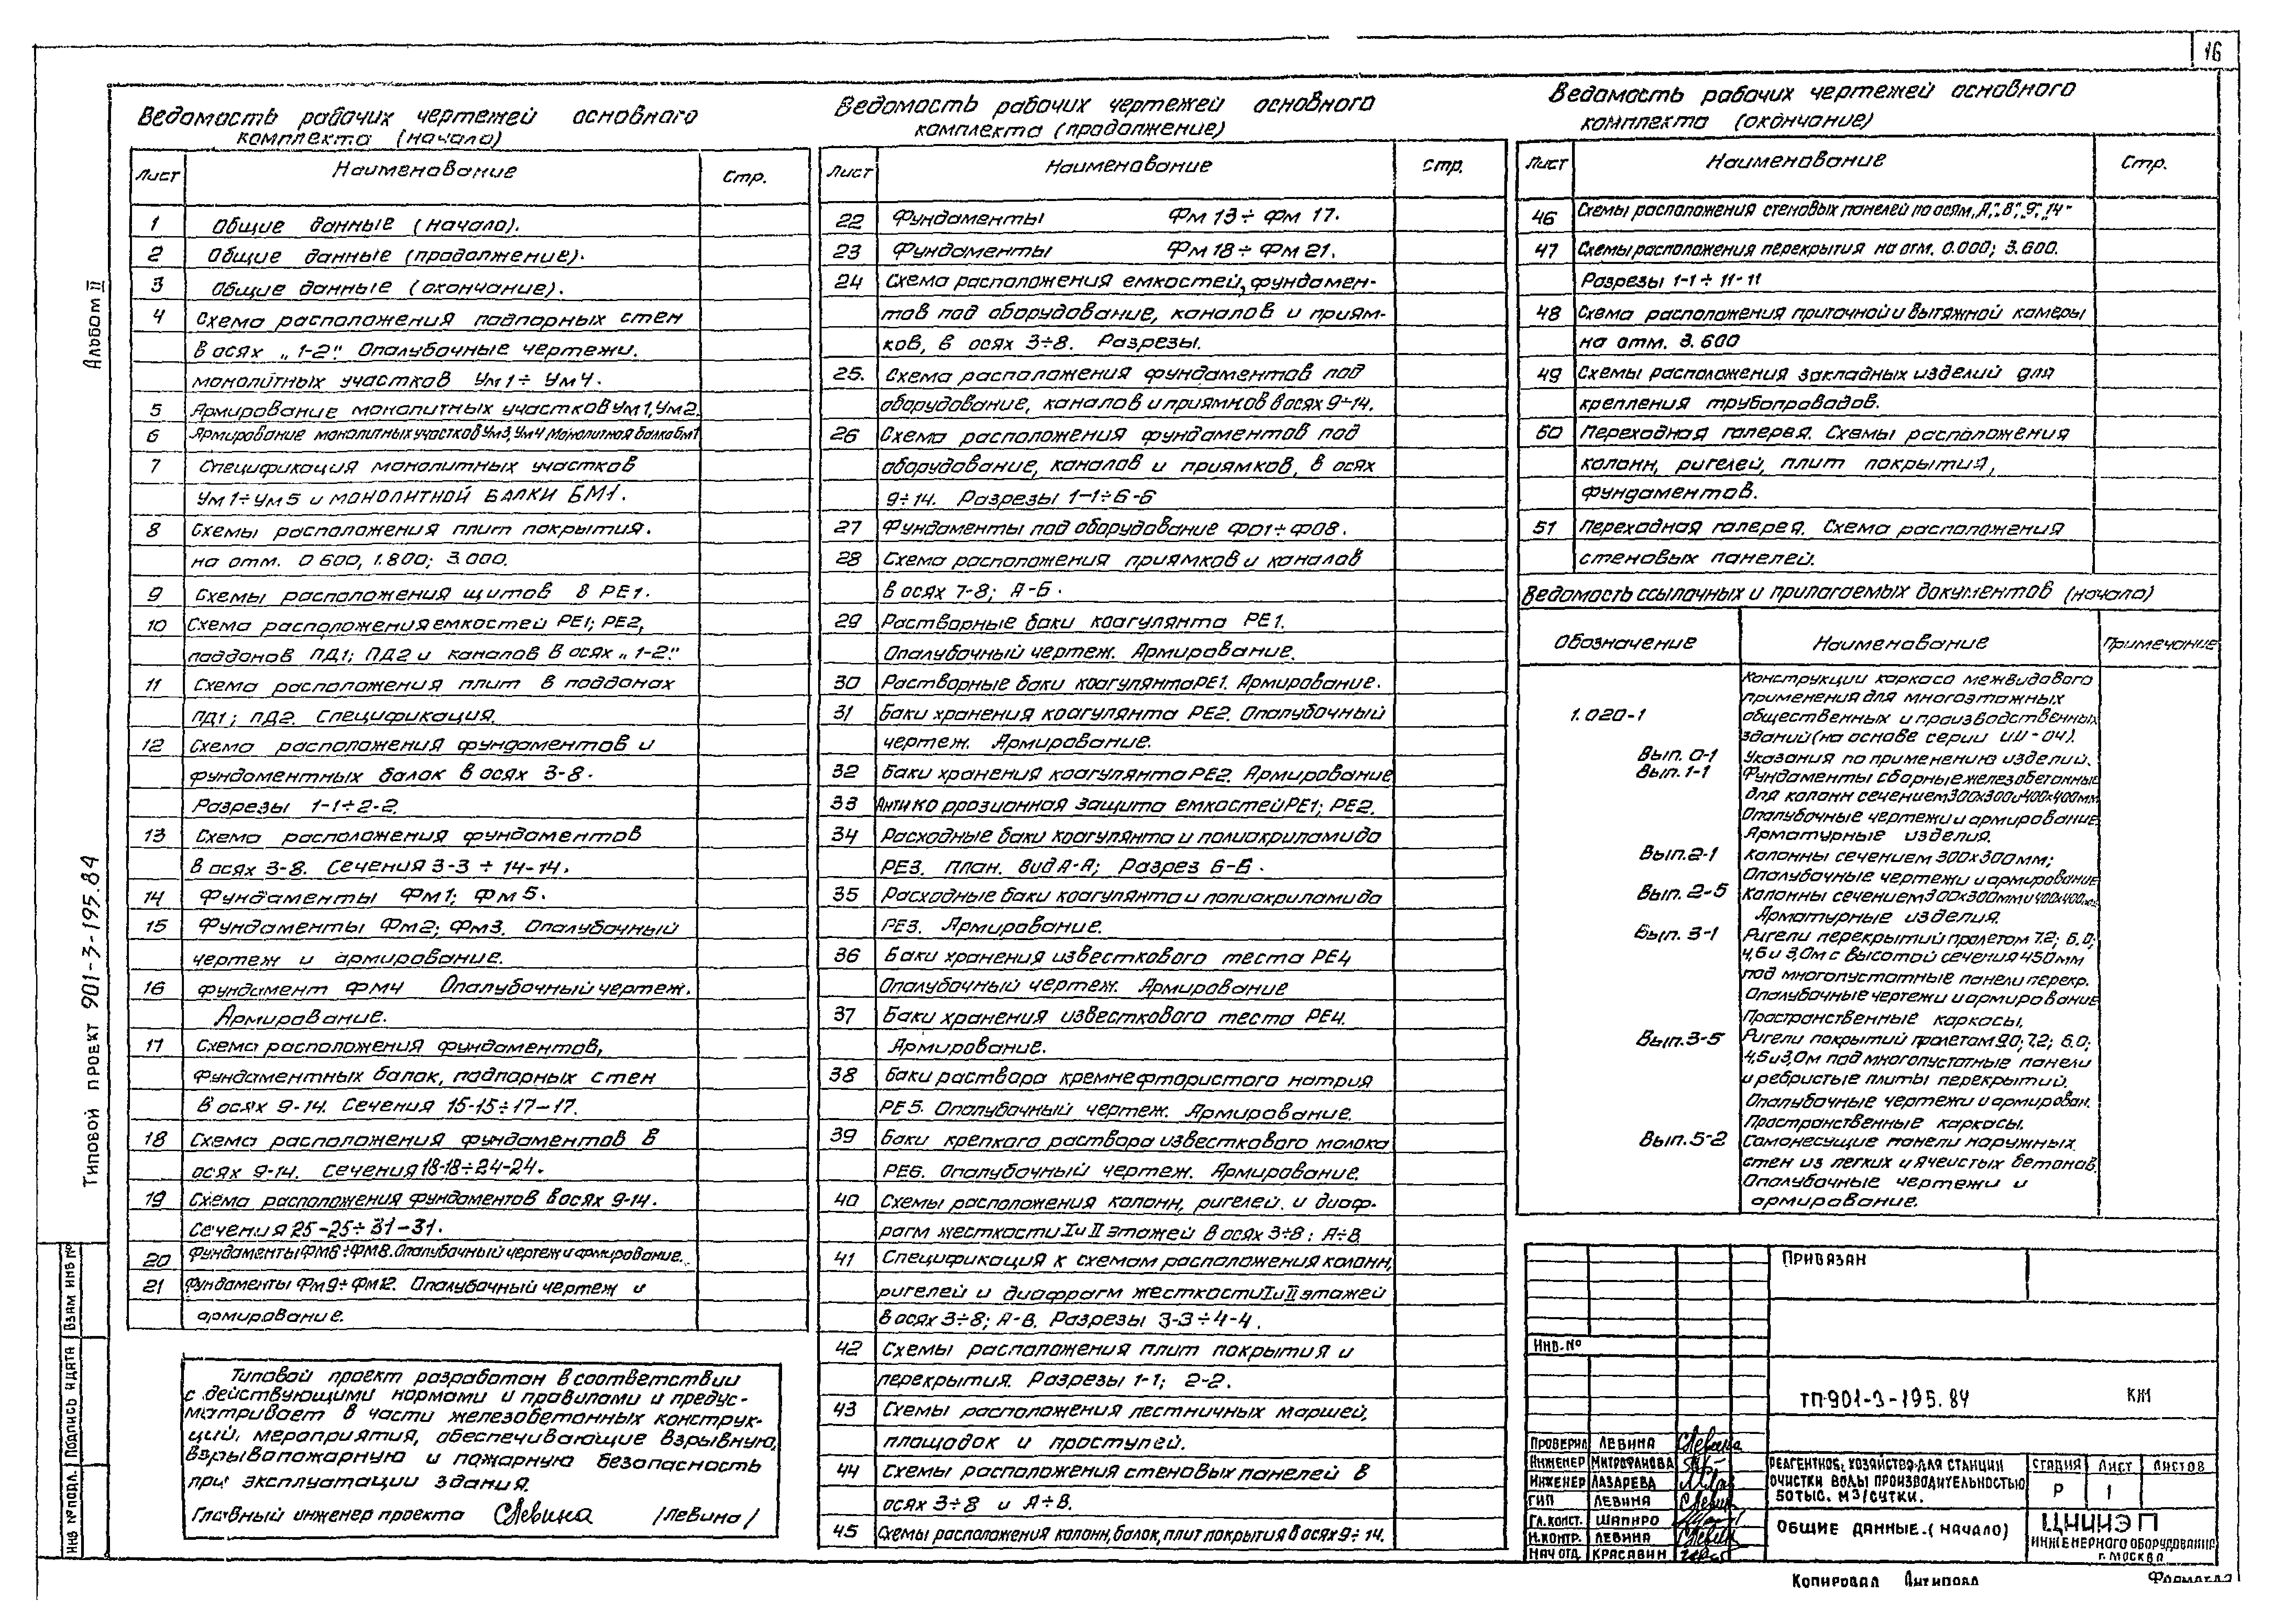 16
Альбом II
Типовой проект 901-3-195.84
Ведомость рабочих чертежей основного
комплекта (начало)
Лист Наименование Стр.
1 Общие данные (начало).
2 Общие данные (продолжение).
3 Общие данные (окончание).
4 Схема расположения подпорных стен
в осях „1-2". Опалубочные чертежи.
монолитных участков Ум1÷Ум4.
5 Армирование монолитных участков Ум1, Ум2.
6 Армирование монолитных участков Ум3, Ум4 Монолитная балка Бм1
7 Спецификация монолитных участков
Ум1÷Ум5 и монолитной балки БМ1.
8 Схемы расположения плит покрытия.
на отм. 0 600, 1.800; 3.000.
9 Схемы расположения щитов в РЕ1.
10 Схема расположения емкостей РЕ1; РЕ2,
поддонов ПД1; ПД2 и каналов в осях „1-2".
11 Схема расположения плит в поддонах
ПД1; ПД2. Спецификация.
12 Схема расположения фундаментов и
фундаментных балок в осях 3-8.
Разрезы 1-1÷2-2.
13 Схема расположения фундаментов
в осях 3-8. Сечения 3-3÷14-14.
14 Фундаменты Фм1; Фм5.
15 Фундаменты Фм2; Фм3. Опалубочный
чертеж и армирование.
16 Фундамент Фм4 Опалубочный чертеж.
Армирование.
17 Схема расположения фундаментов,
фундаментных балок, подпорных стен
в осях 9-14. Сечения 15-15÷17-17.
18 Схема расположения фундаментов в
осях 9-14. Сечения 18-18÷24-24.
19 Схема расположения фундаментов в осях 9-14.
Сечения 25-25÷31-31.
20 Фундаменты Фм6÷Фм8. Опалубочный чертеж и армирование.
21 Фундаменты Фм9÷Фм12. Опалубочный чертеж и
армирование.
Типовой проект разработан в соответствии
с действующими нормами и правилами и предус-
матривает в части железобетонных конструк-
ций, мероприятия, обеспечивающие взрывную,
взрывопожарную и пожарную безопасность
при эксплуатации здания.
Главный инженер проекта СЛевина /Левина/
Ведомость рабочих чертежей основного
комплекта (продолжение)
Лист Наименование Стр.
22 Фундаменты Фм 13÷Фм 17.
23 Фундаменты Фм 18÷Фм 21.
24 Схема расположения емкостей, фундамен-
тов под оборудование, каналов и приям-
ков, в осях 3÷8. Разрезы.
25. Схема расположения фундаментов под
оборудование, каналов и приямков в осях 9÷14.
26 Схема расположения фундаментов под
оборудование, каналов и приямков, в осях
9÷14. Разрезы 1-1÷6-6
27 Фундаменты под оборудование ФО1÷ФО8.
28 Схема расположения приямков и каналов
в осях 7-8; А-Б.
29 Растворные баки коагулянта РЕ1.
Опалубочный чертеж. Армирование.
30 Растворные баки коагулянта РЕ1. Армирование.
31 Баки хранения коагулянта РЕ2. Опалубочный
чертеж. Армирование.
32 Баки хранения коагулянта РЕ2. Армирование
33 Антикоррозионная защита емкостей РЕ1; РЕ2.
34 Расходные баки коагулянта и полиакриламида
РЕ3. План. Вид А-А; Разрез Б-Б.
35 Расходные баки коагулянта и полиакриламида
РЕ3. Армирование.
36 Баки хранения известкового теста РЕ4
Опалубочный чертеж. Армирование
37 Баки хранения известкового теста РЕ4.
Армирование.
38 Баки раствора кремнефтористого натрия
РЕ5. Опалубочный чертеж. Армирование.
39 Баки крепкого раствора известкового молока
РЕ6. Опалубочный чертеж. Армирование.
40 Схемы расположения колонн, ригелей. и диаф-
рагм жесткости I и II этажей в осях 3÷8; А÷В.
41 Спецификация к схемам расположения колонн,
ригелей и диафрагм жесткости I и II этажей
в осях 3÷8; А-В. Разрезы 3-3÷4-4.
42 Схемы расположения плит покрытия и
перекрытия. Разрезы 1-1; 2-2.
43 Схемы расположения лестничных маршей,
площадок и проступей.
44 Схемы расположения стеновых панелей в
осях 3÷8 и А÷В.
45 Схемы расположения колонн, балок, плит покрытия в осях 9÷14.
Ведомость рабочих чертежей основного
комплекта (окончание)
Лист Наименование Стр.
46 Схемы расположения стеновых панелей по осям „А", „В", „9", „14"
47 Схемы расположения перекрытия на отм. 0.000; 3.600.
Разрезы 1-1÷11-11
48 Схема расположения приточной и вытяжной камеры
на отм. 3.600
49 Схемы расположения закладных изделий для
крепления трубопроводов.
50 Переходная галерея. Схемы расположения
колонн, ригелей, плит покрытия,
фундаментов.
51 Переходная галерея. Схема расположения
стеновых панелей.
Ведомость ссылочных и прилагаемых документов (начало)
Обозначение Наименование Примечание
Конструкции каркаса межвидового
применения для многоэтажных
1.020-1 общественных и производственных
зданий (на основе серии ИИ-04).
Вып. 0-1 Указания по применению изделий.
Вып. 1-1 Фундаменты сборные железобетонные
для колонн сечением 300х300 и 400х400мм
Опалубочные чертежи и армирование
Арматурные изделия.
Вып. 2-1 Колонны сечением 300х300мм;
Опалубочные чертежи и армирование
Вып. 2-5 Колонны сечением 300х300мм и 400х400мм.
Арматурные изделия.
Вып. 3-1 Ригели перекрытий пролетом 7.2; 6.0;
4,5 и 3,0м с высотой сечения 450мм
под многопустотные панели перекр.
Опалубочные чертежи и армирование
Пространственные каркасы.
Вып. 3-5 Ригели покрытий пролетам 9.0; 7.2; 6.0;
4,5 и 3,0м под многопустотные панели
и ребристые плиты перекрытий.
Опалубочные чертежи и армирован.
Пространственные каркасы.
Вып. 5-2 Самонесущие панели наружных
стен из легких и ячеистых бетонов.
Опалубочные чертежи и
армирование.
Привязан
Инв.№
ТП 901-3-195.84 КЖ
Проверил Левина СЛевина
Инженер Митрофанова
Инженер Лазарева
ГИП Левина
Гл.конст. Шапиро
Н.контр. Левина
Нач отд. Красавин
Реагентное хозяйство для станции
очистки воды производительностью
50 тыс. м3/сутки.
Стадия Лист Листов
Р 1
Общие данные. (начало)
ЦНИИЭП
инженерного оборудования
г. Москва
Копировал Антипова
Формат А2
Инв № подл. Подпись и дата Взам инв №